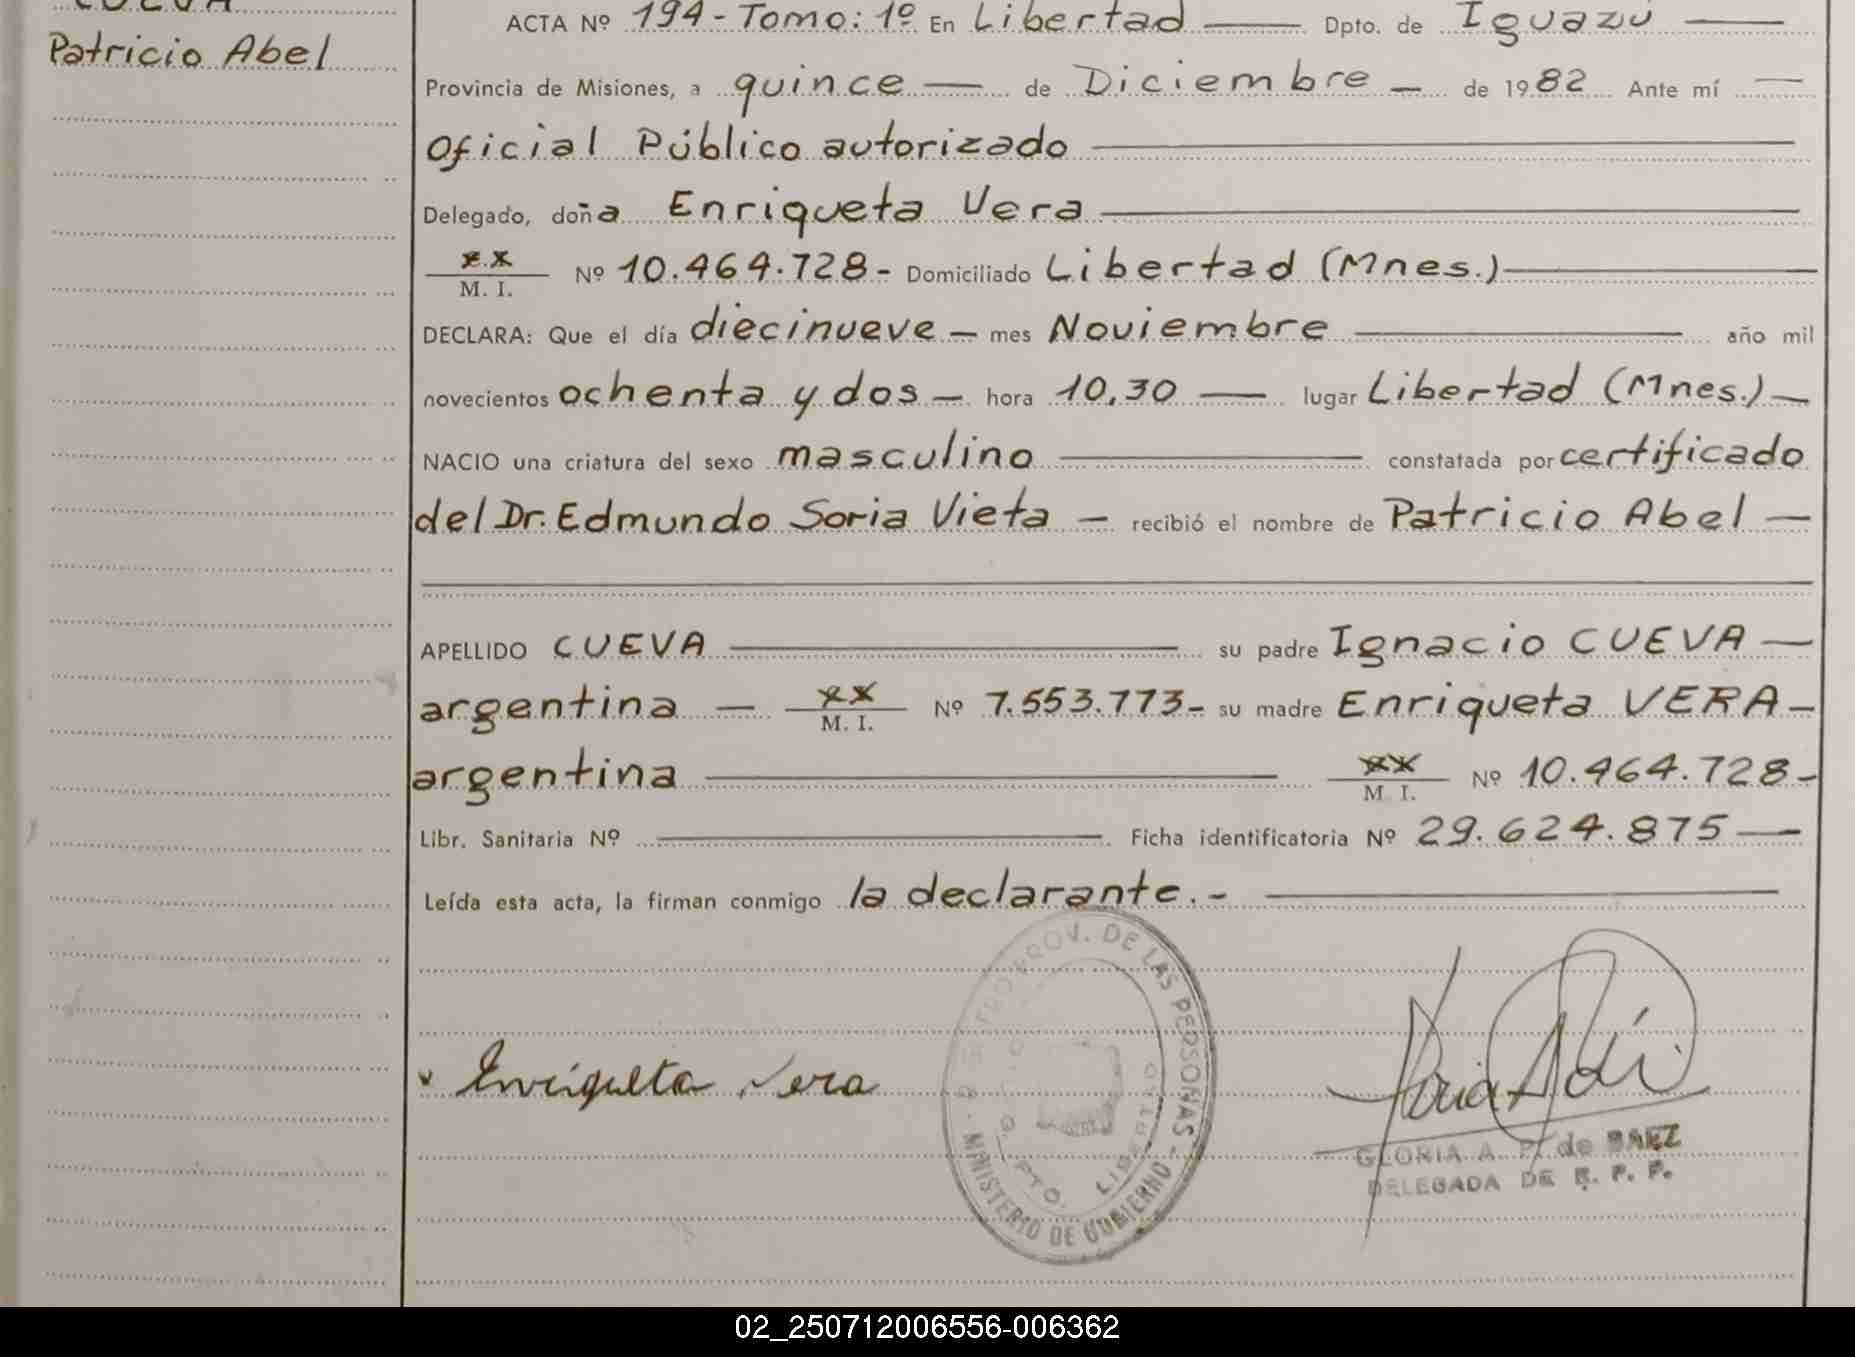 CUEVA
Patricio Abel
ACTA Nº 194 - Tomo: 1º En Libertad Dpto. de Iguazú
Provincia de Misiones, a quince de Diciembre de 1982 Ante mí
Oficial Público autorizado
Delegado, doña Enriqueta Vera
M. I. Nº 10.464.728- Domiciliado Libertad (Mnes.)
DECLARA: Que el día diecinueve mes Noviembre año mil
novecientos ochenta y dos hora 10,30 lugar Libertad (Mnes.)
NACIO una criatura del sexo masculino constatada por certificado
del Dr. Edmundo Soria Vieta recibió el nombre de Patricio Abel
APELLIDO CUEVA su padre Ignacio CUEVA
argentina M. I. Nº 7.553.773- su madre Enriqueta VERA
argentina M. I. Nº 10.464.728-
Libr. Sanitaria Nº Ficha identificatoria Nº 29.624.875
Leída esta acta, la firman conmigo la declarante.-
PROV. DE LAS PERSONAS - MINISTERIO DE GOBIERNO
DPTO. LIBERTAD
Enriqueta Vera
GLORIA A. P. de BAEZ
DELEGADA DE R. P. P.
02_250712006556-006362